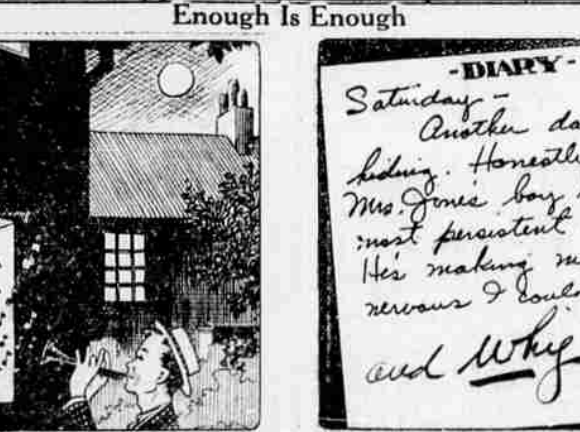 Enough Is Enough
-DIARY-
Saturday -
Another da
hiding. Honestl
Mrs. Jones boy
most persistent
He's making
nervous I coul
and Why